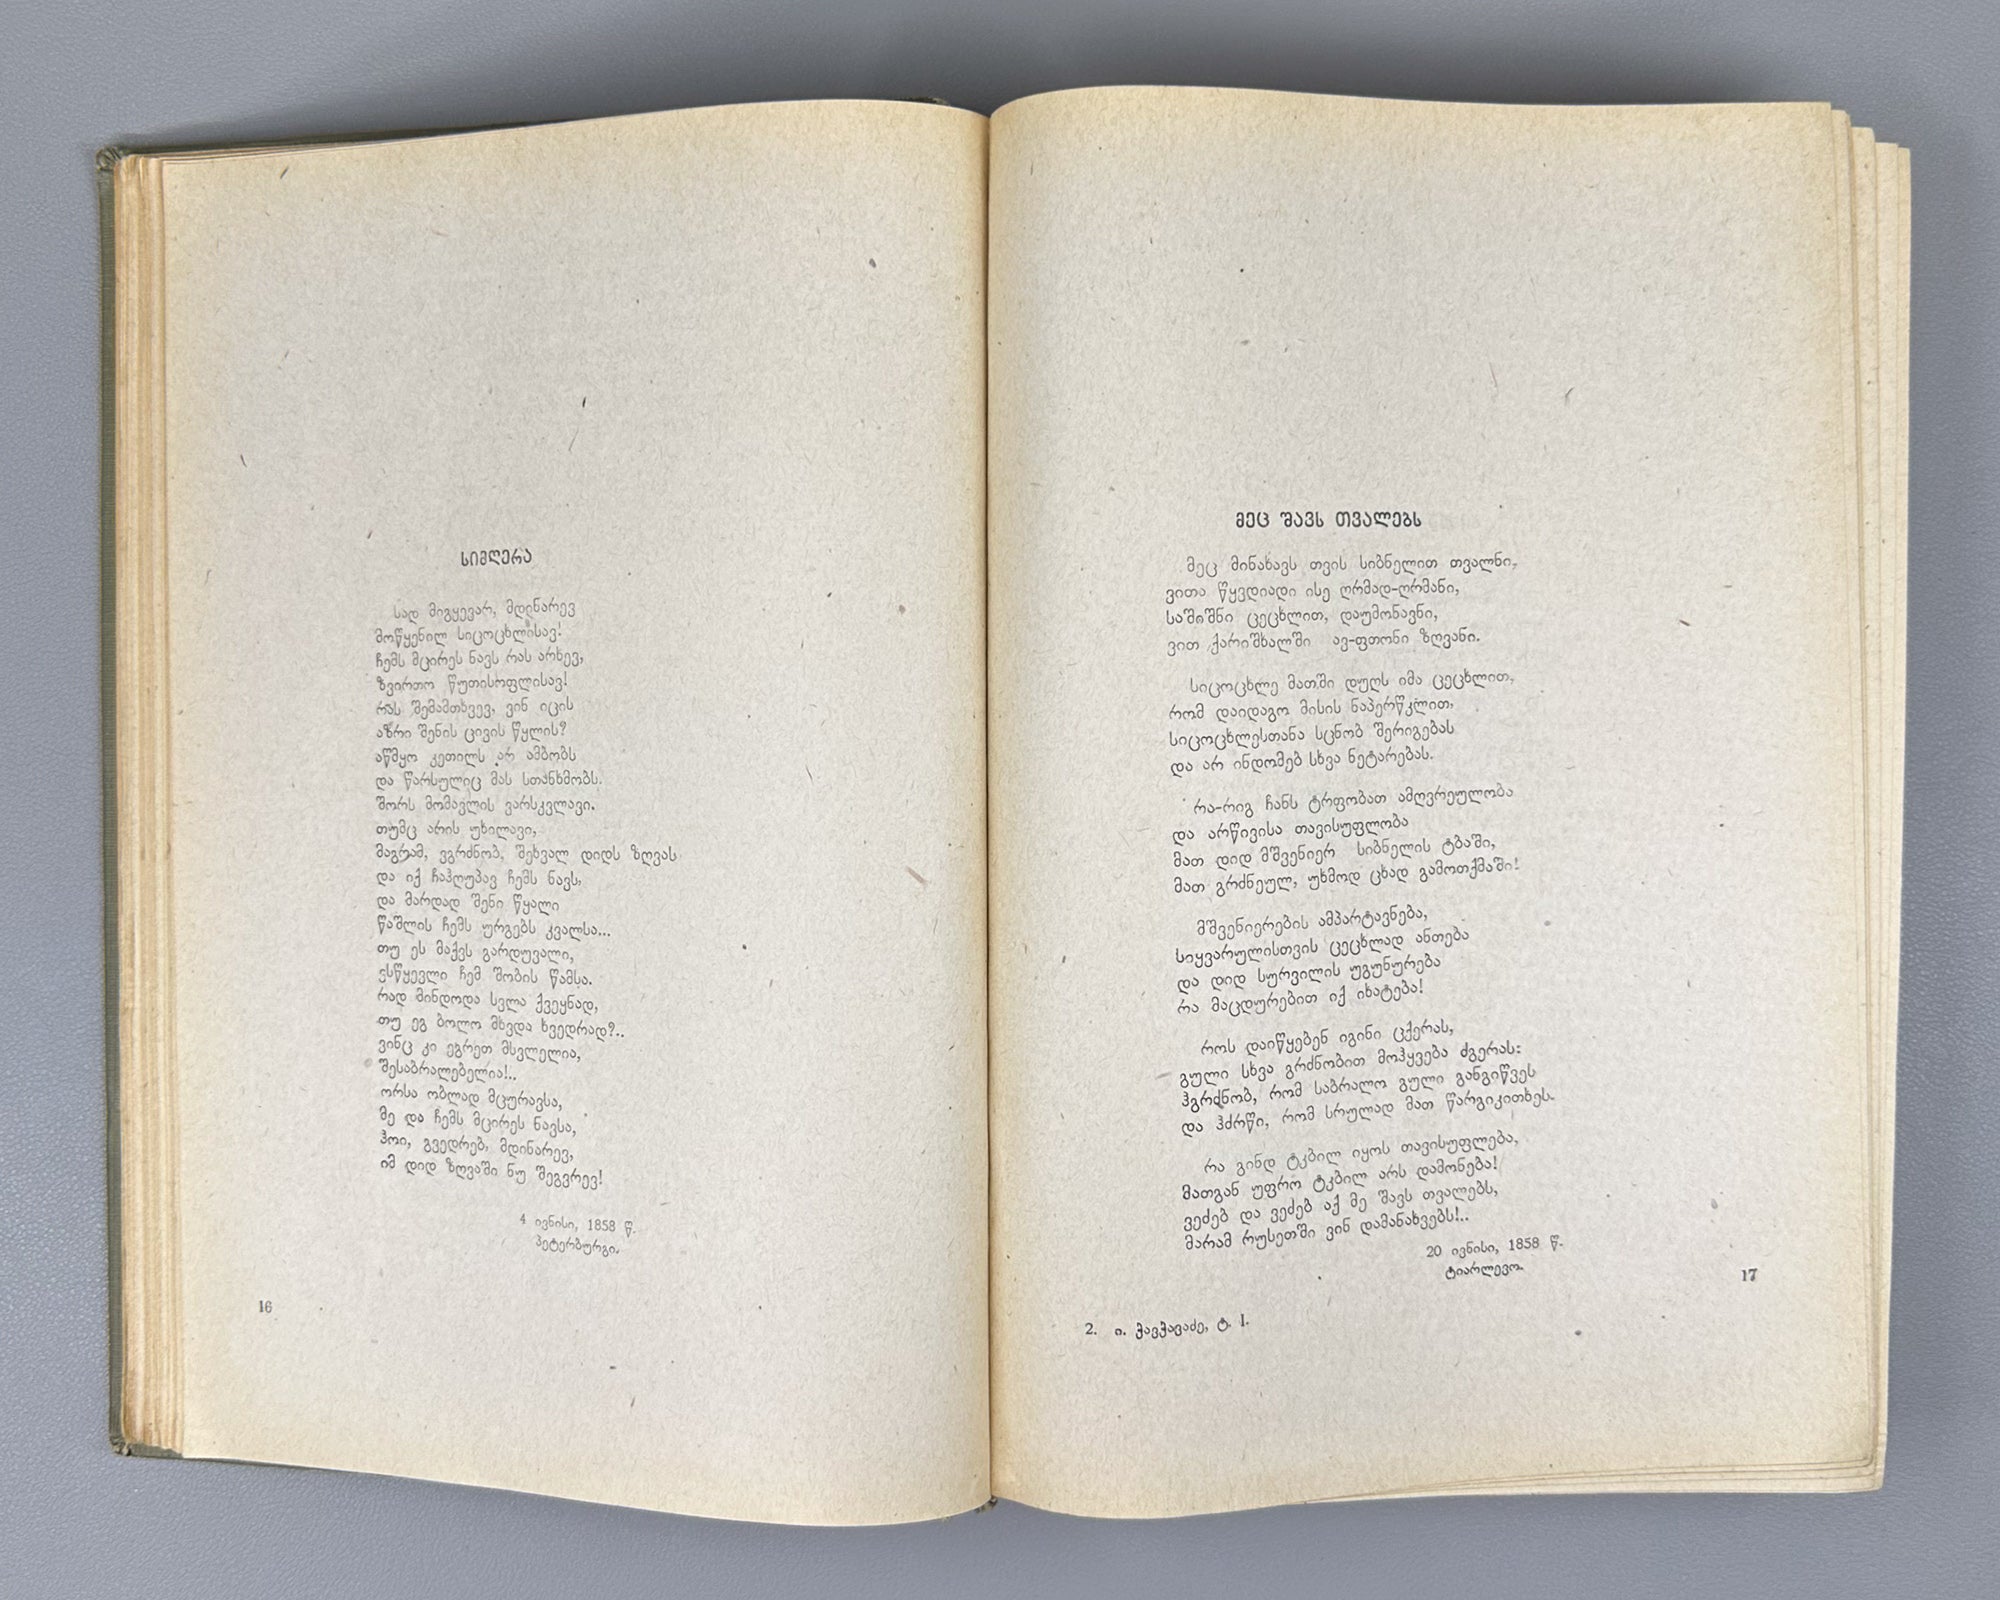 სიმღერა
სად მიგყევარ, მდინარევ
მოწყენილ სიცოცხლისავ!
ჩემს მცირეს ნავს რას არხევ,
ზვირთო წუთისოფლისავ!
რას შემამთხვევ, ვინ იცის
აზრი შენის ცივის წყლის?
აწმყო კეთილს არ ამბობს
და წარსულიც მას სთანხმობს.
შორს მომავლის ვარსკვლავი.
თუმც არის უხილავი,
მაგრამ, ვგრძნობ, შეხვალ დიდს ზღვას
და იქ ჩაჰღუპავ ჩემს ნავს,
და მარდად შენი წყალი
წაშლის ჩემს ურგებს კვალსა...
თუ ეს მაქვს გარდუვალი,
ვსწყევლი ჩემ შობის წამსა.
რად მინდოდა სვლა ქვეყნად,
თუ ეგ ბოლო მხვდა ხვედრად?..
ვინც კი ეგრეთ მსვლელია,
შესაბრალებელია!..
ორსა ობლად მცურავსა,
მე და ჩემს მცირეს ნავსა,
ჰოი, გვედრებ, მდინარევ,
იმ დიდ ზღვაში ნუ შეგვრევ!
4 ივნისი, 1858 წ.
პეტერბურგი.
16
მეც შავს თვალებს
მეც მინახავს თვის სიბნელით თვალნი,
ვითა წყვდიადი ისე ღრმად-ღრმანი,
საშიშნი ცეცხლით, დაუმონავნი,
ვით ქარიშხალში ავ-ფთონი ზღვანი.
სიცოცხლე მათში დუღს იმა ცეცხლით,
რომ დაიდაგო მისის ნაპერწკლით,
სიცოცხლესთანა სცნობ შერიგებას
და არ ინდომებ სხვა ნეტარებას.
რა-რიგ ჩანს ტრფობათ ამღვრეულობა
და არწივისა თავისუფლობა
მათ დიდ მშვენიერ სიბნელის ტბაში,
მათ გრძნეულ, უხმოდ ცხად გამოთქმაში!
მშვენიერების ამპარტავნება,
სიყვარულისთვის ცეცხლად ანთება
და დიდ სურვილის უგუნურება
რა მაცდურებით იქ იხატება!
როს დაიწყებენ იგინი ცქერას,
გული სხვა გრძნობით მოჰყვება ძგერას:
ჰგრძნობ, რომ საბრალო გული განგიწვეს
და ჰძრწი, რომ სრულად მათ წარგიკითხეს.
რა გინდ ტკბილ იყოს თავისუფლება,
მათგან უფრო ტკბილ არს დამონება!
ვეძებ და ვეძებ აქ მე შავს თვალებს,
მარამ რუსეთში ვინ დამანახვებს!..
20 ივნისი, 1858 წ.
ტიარლევო.
17
2. ი. ჭავჭავაძე, ტ. I.